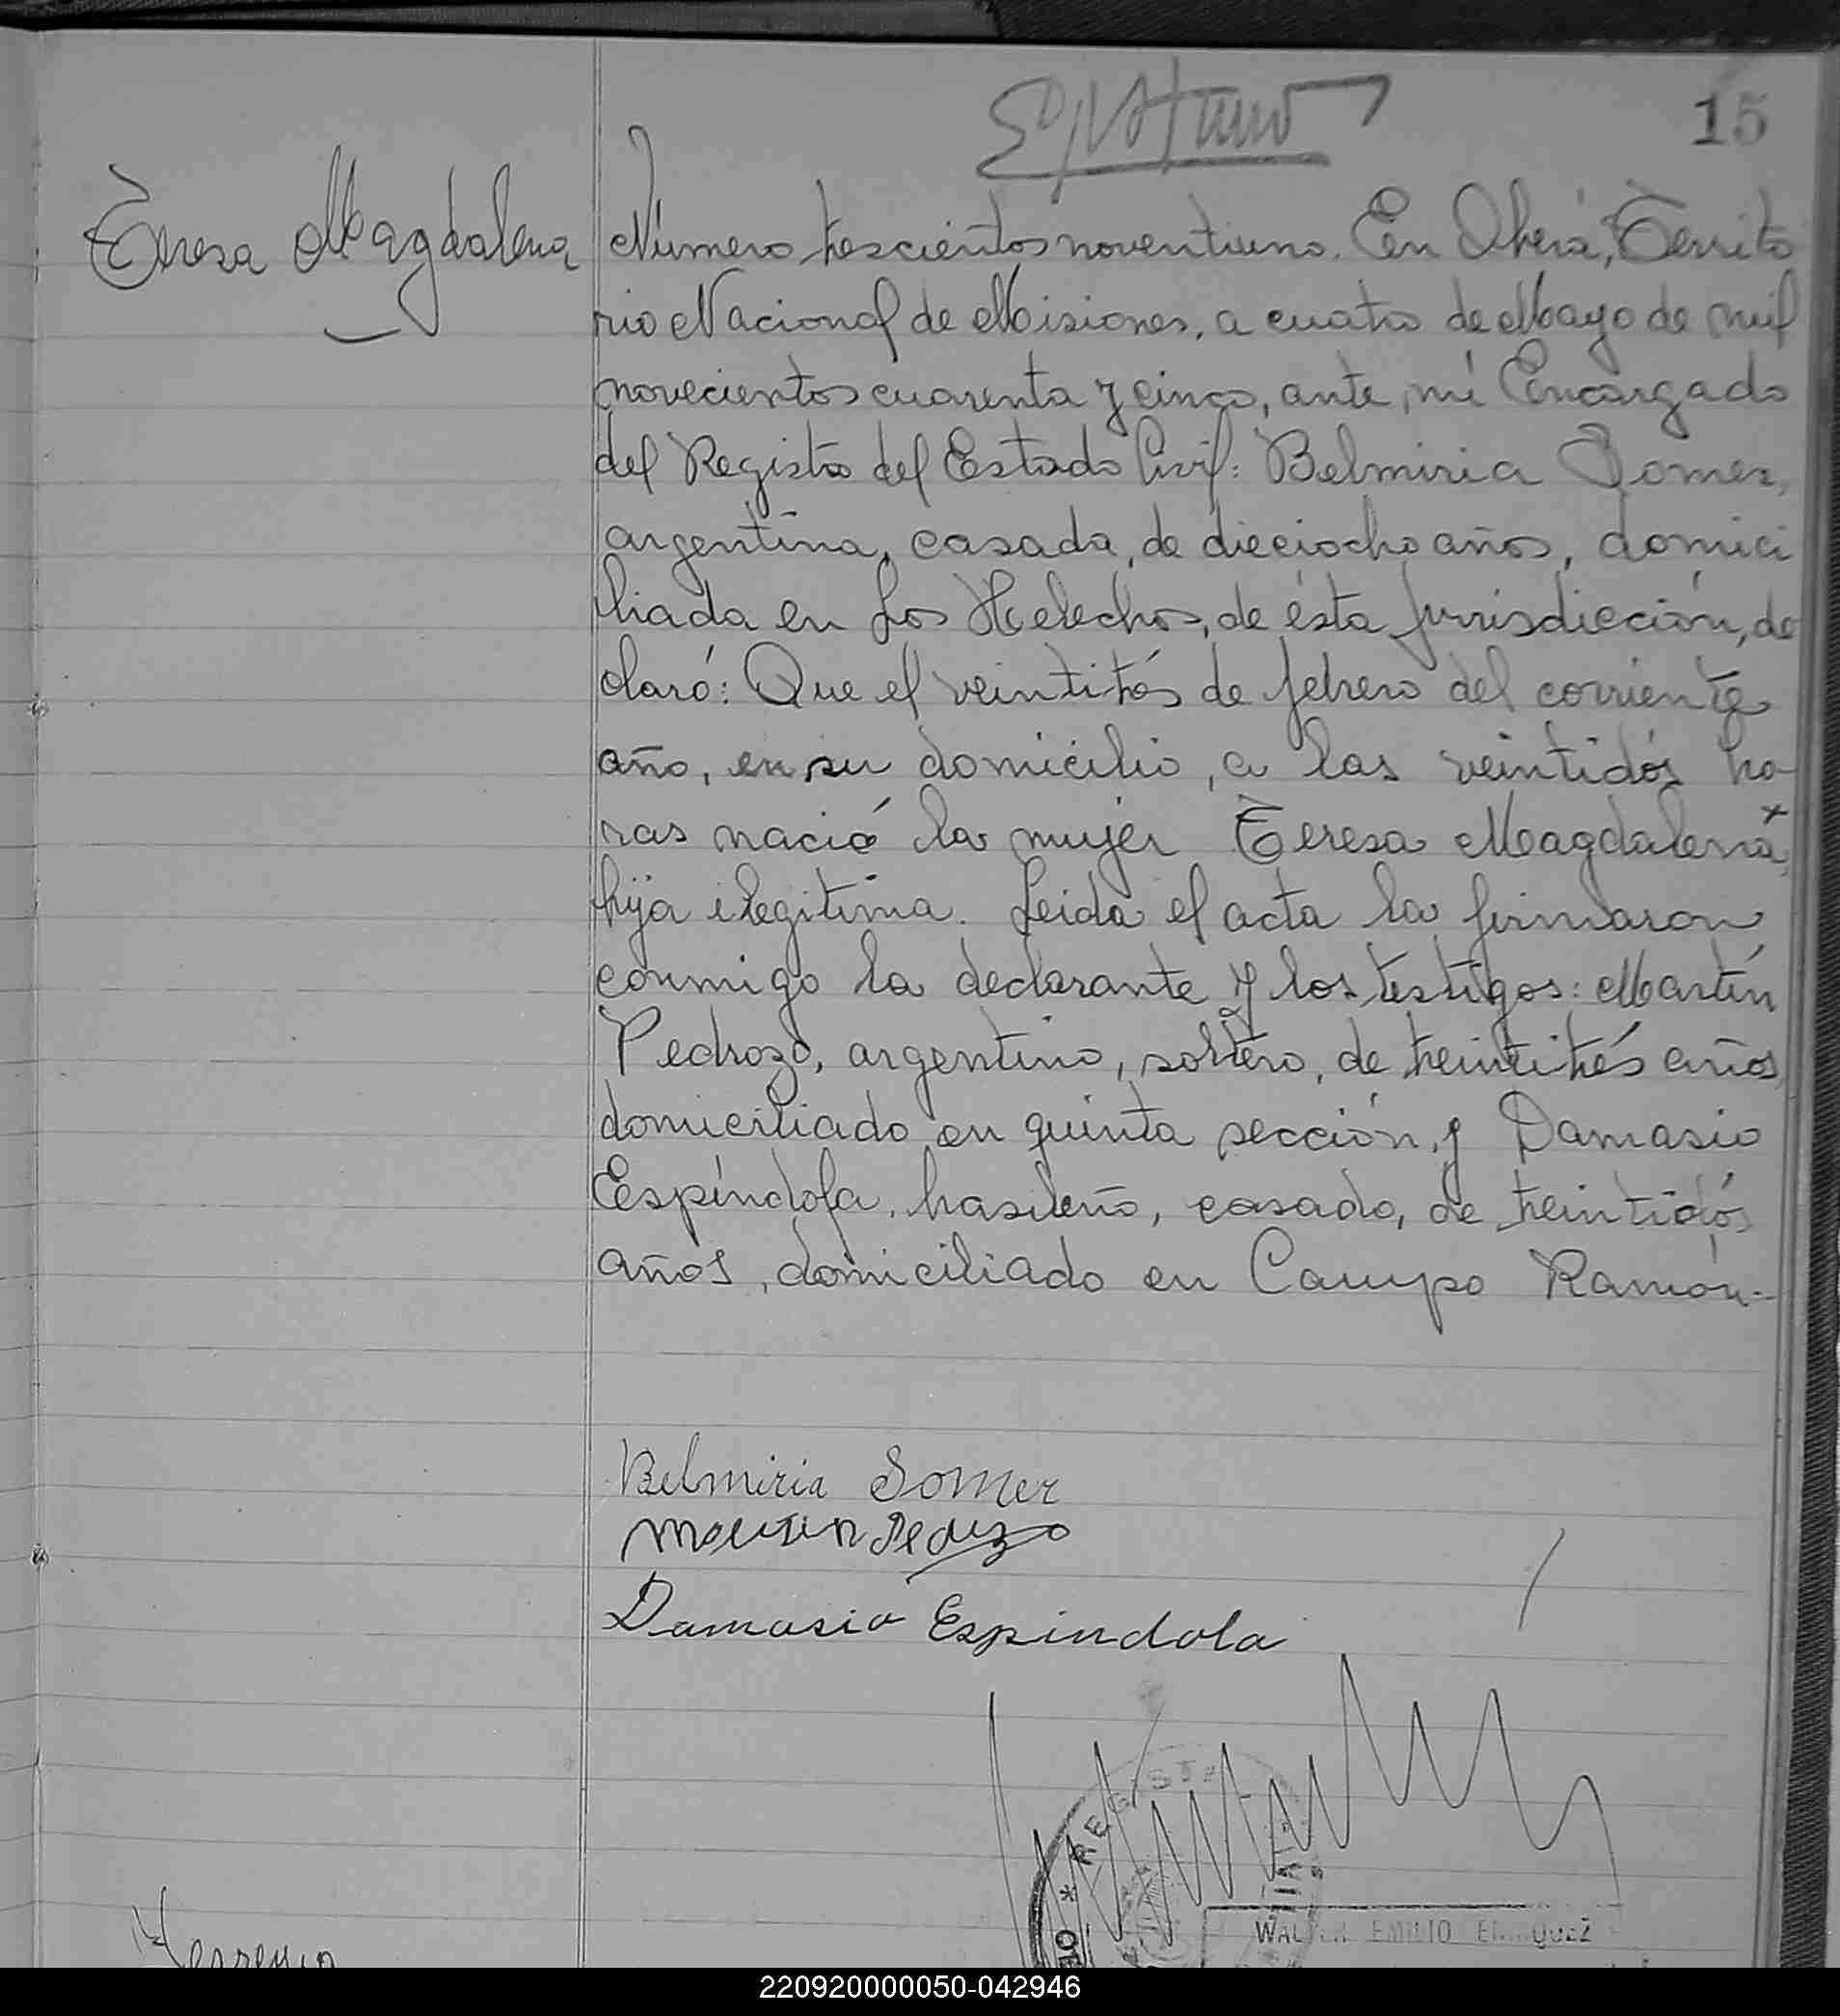 15
Teresa Magdalena
Número trescientos noventiuno. En Oberá, Territo
rio Nacional de Misiones, a cuatro de Mayo de mil
novecientos cuarenta y cinco, ante mí Encargado
del Registro del Estado Civil: Belmiria Gomez,
argentina, casada, de dieciocho años, domici
liada en Los Helechos, de ésta jurisdicción, de
claró: Que el veintitrés de febrero del corriente
año, en su domicilio, a las veintidós ho-
ras nació la mujer Teresa Magdalena,
hija ilegitima. Leida el acta la firmaron
conmigo la declarante y los testigos: Martín
Pedrozo, argentino, soltero, de treintitrés años,
domiciliado en quinta sección, y Damasio
Espíndola, brasileño, casado, de treintidós
años, domiciliado en Campo Ramón.-
Belmiria Gomez
Martin Pedrozo
Damasio Espindola
REGIST
WALTER EMILIO ENRIQUEZ
220920000050-042946